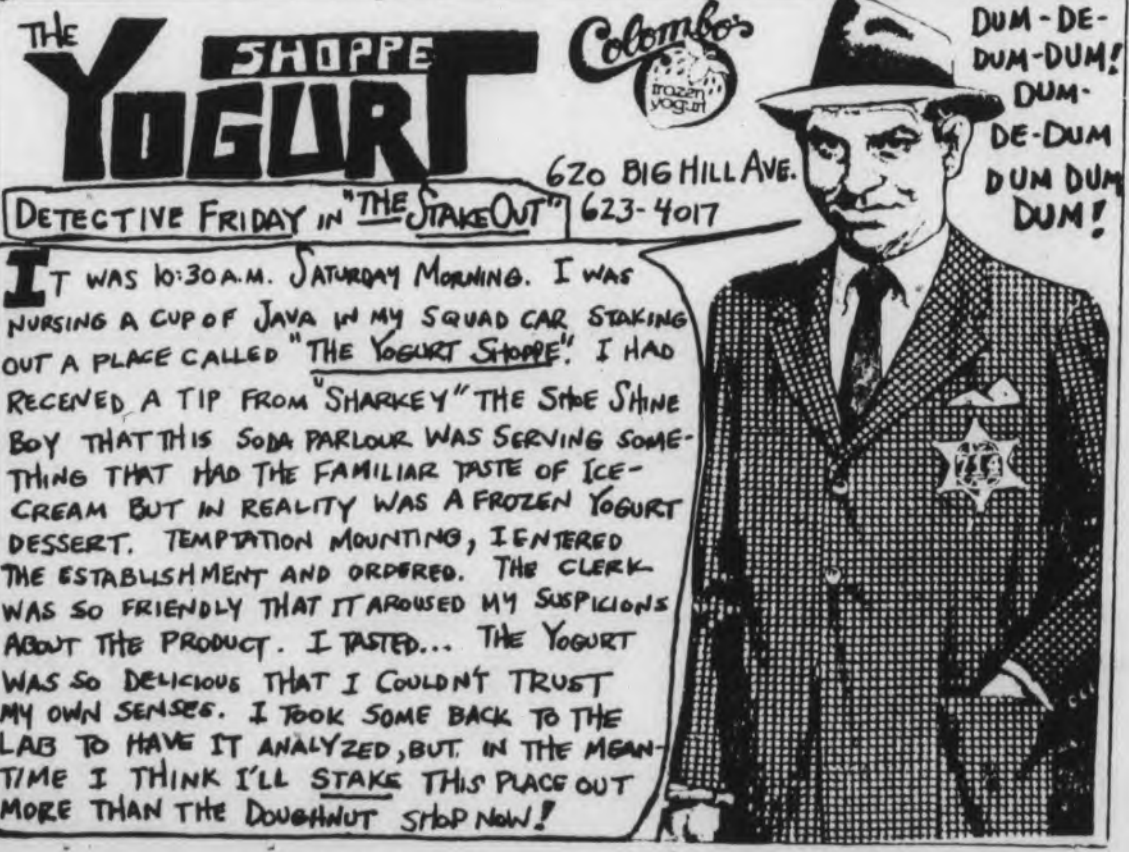 THE
SHOPPE
YOGURT
Colombo's
frozen
yogurt
620 BIG HILL AVE.
623-4017
DUM-DE-
DUM-DUM!
DUM-
DE-DUM
DUM DUM
DUM!
DETECTIVE FRIDAY IN "THE STAKEOUT"
IT WAS 10:30 A.M. SATURDAY MORNING. I WAS
NURSING A CUP OF JAVA IN MY SQUAD CAR STAKING
OUT A PLACE CALLED "THE YOGURT SHOPPE". I HAD
RECEIVED A TIP FROM "SHARKEY" THE SHOE SHINE
BOY THAT THIS SODA PARLOUR WAS SERVING SOME-
THING THAT HAD THE FAMILIAR TASTE OF ICE-
CREAM BUT IN REALITY WAS A FROZEN YOGURT
DESSERT. TEMPTATION MOUNTING, I ENTERED
THE ESTABLISHMENT AND ORDERED. THE CLERK
WAS SO FRIENDLY THAT IT AROUSED MY SUSPICIONS
ABOUT THE PRODUCT. I TASTED... THE YOGURT
WAS SO DELICIOUS THAT I COULDN'T TRUST
MY OWN SENSES. I TOOK SOME BACK TO THE
LAB TO HAVE IT ANALYZED, BUT. IN THE MEAN-
TIME I THINK I'LL STAKE THIS PLACE OUT
MORE THAN THE DOUGHNUT SHOP NOW!
714